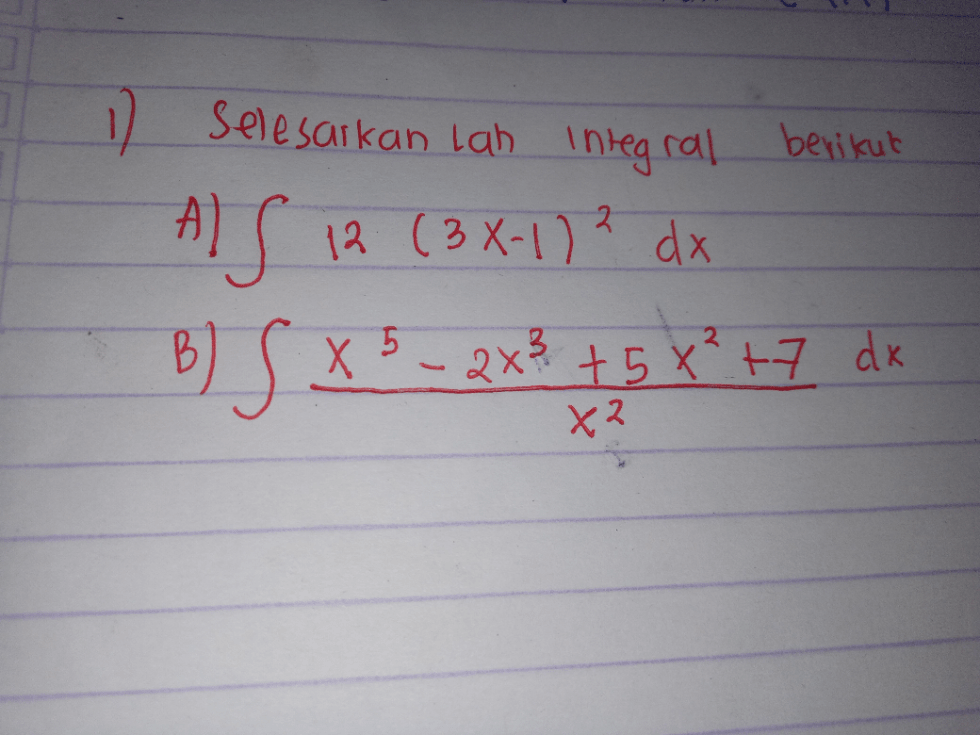 1) Selesaikan lah integral berikut
A) ∫ 12 (3x-1)² dx
B) ∫ x⁵ - 2x³ + 5x² + 7 dx
x²